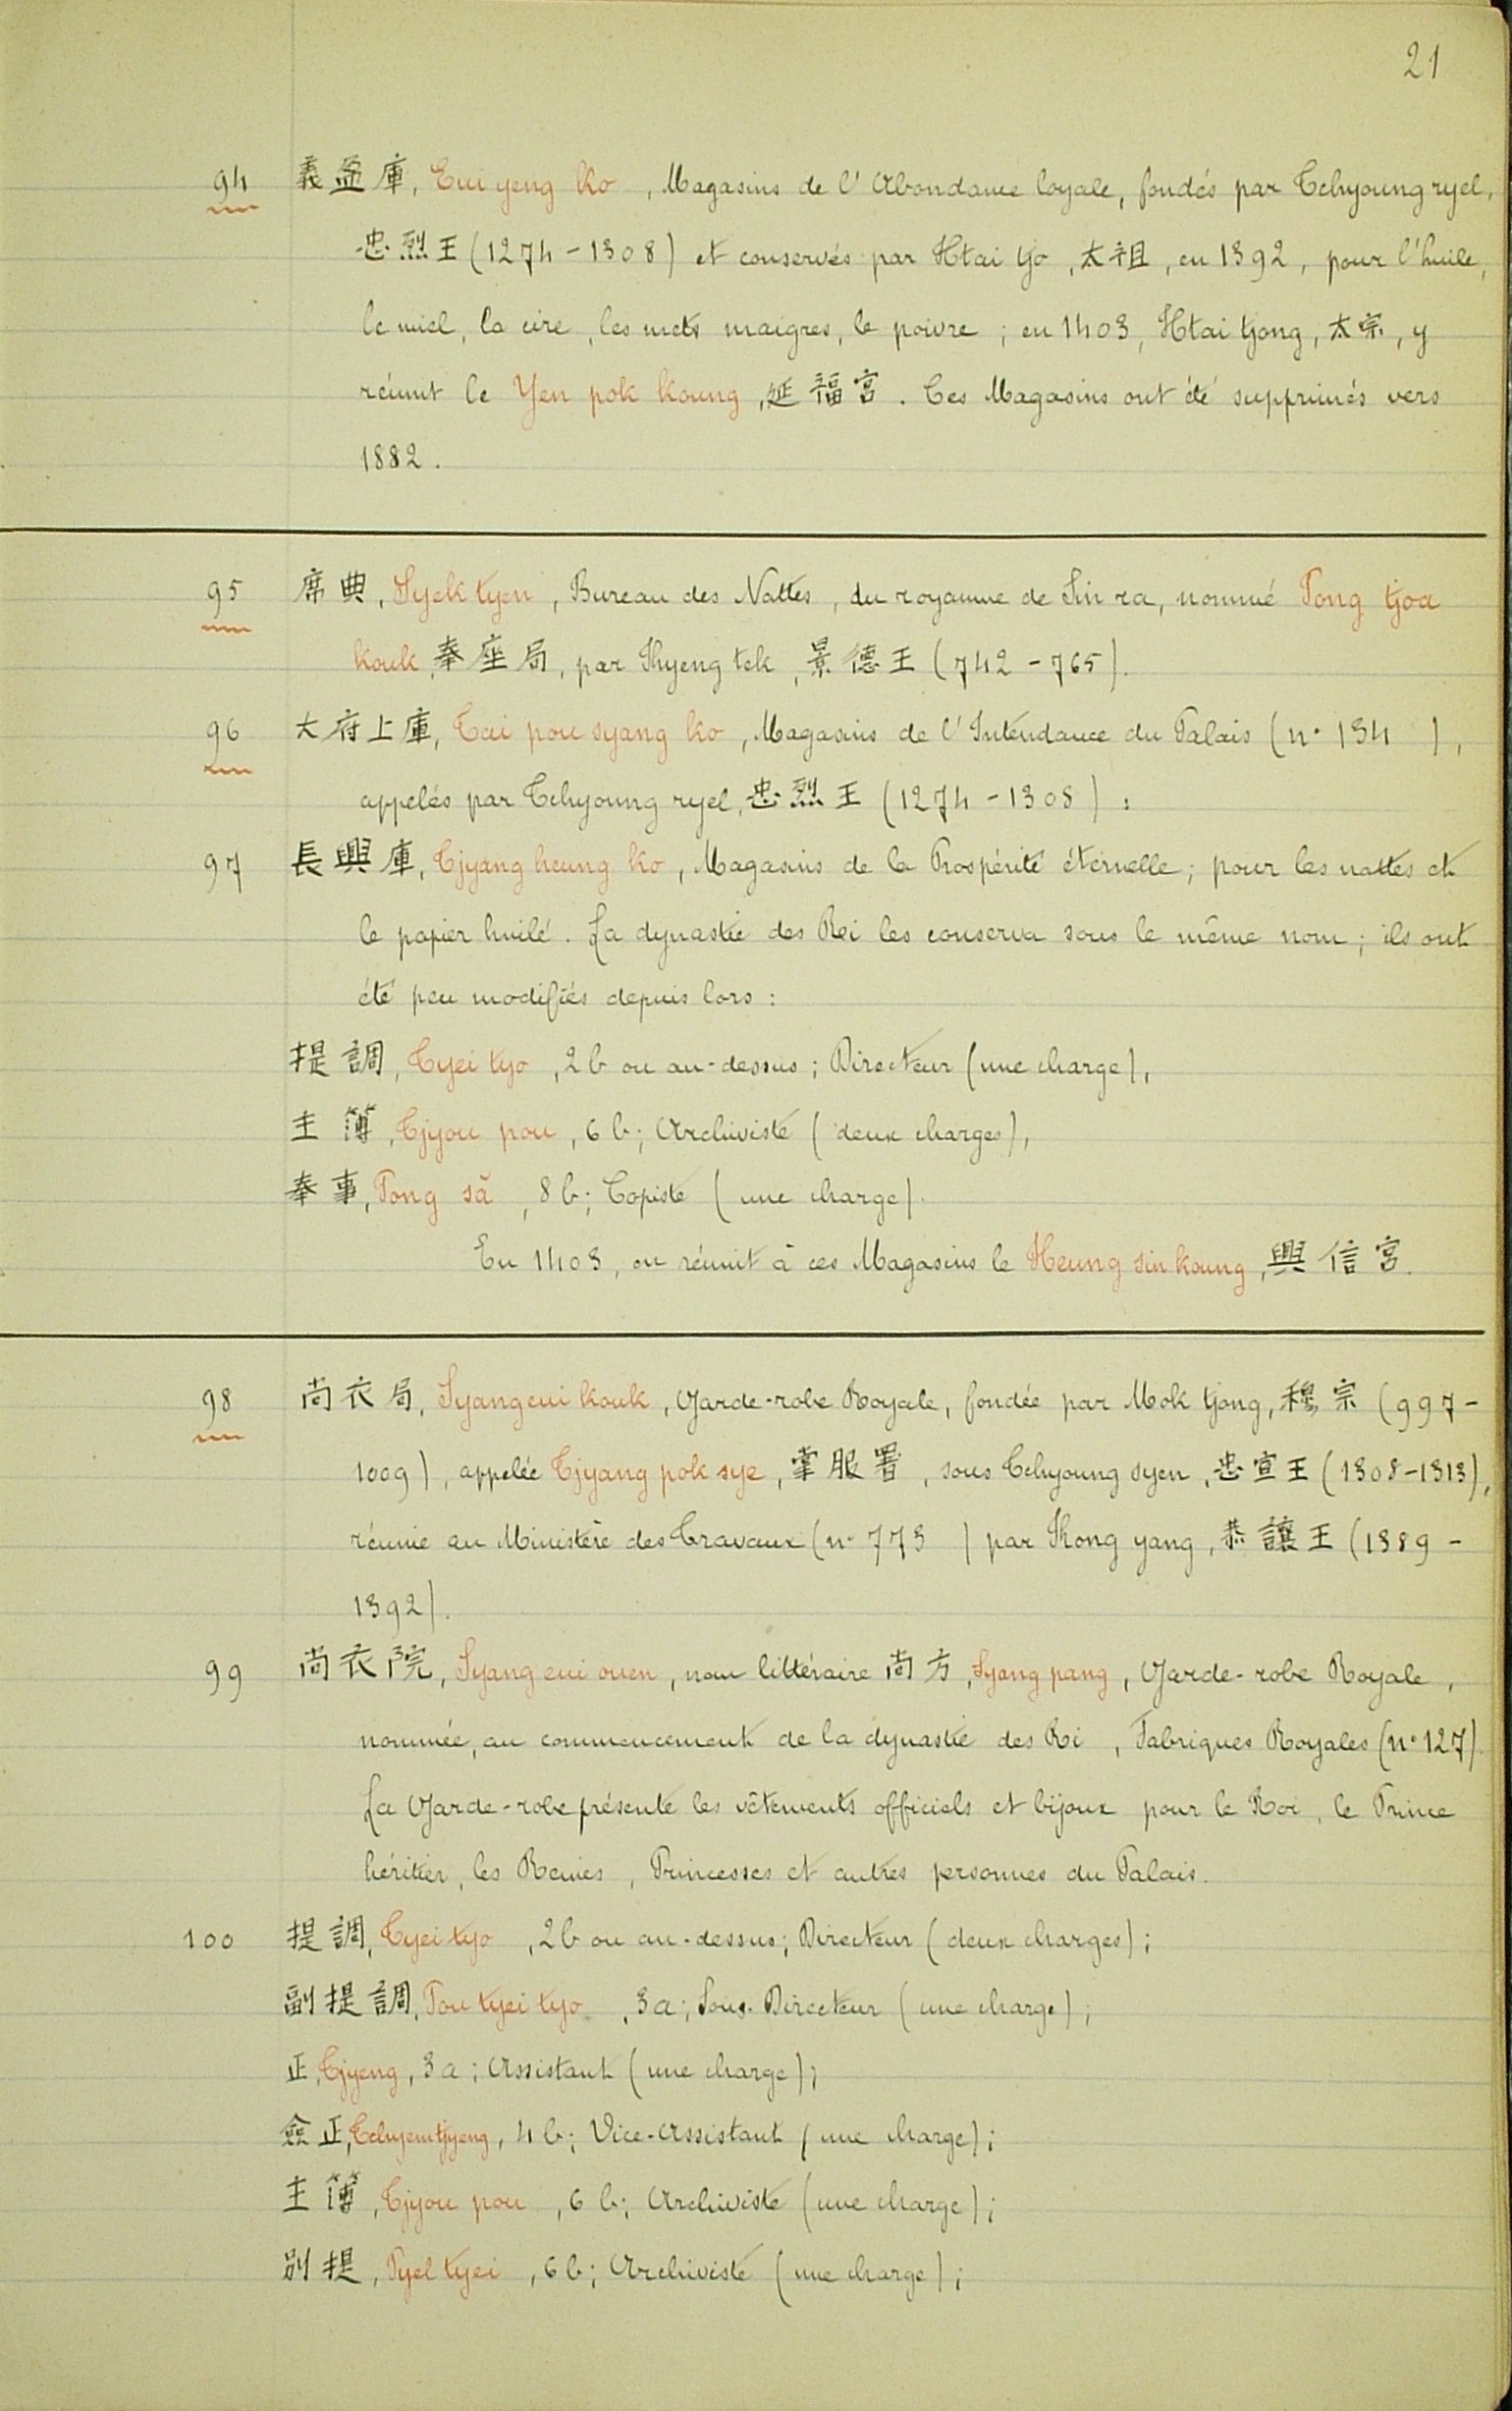 21
94 義盈庫, Eui yeng ko, Magasins de l'Abondance loyale, fondés par Tchyoung ryel,
忠烈王 (1274-1308) et conservés par Htai tjo, 太祖, en 1392, pour l'huile,
le miel, la cire, les mets maigres, le poivre; en 1403, Htai tjong, 太宗, y
réunit le Yen pok koung, 延福宮. Ces Magasins ont été supprimés vers
1882.
95 席典, Syek tyen, Bureau des Nattes, du royaume de Sin ra, nommé Pong tjoa
kouk, 奉座局, par Kyeng tek, 景德王 (742-765).
96 大府上庫, Tai pou syang ko, Magasins de l'Intendance du Palais (n° 134 ),
appelés par Tchyoung ryel, 忠烈王 (1274-1308):
97 長興庫, Tjyang heung ko, Magasins de la Prospérité éternelle; pour les nattes et
le papier huilé. La dynastie des Rei les conserva sous le même nom; ils ont
été peu modifiés depuis lors:
提調, Tyei tyo, 2b ou au-dessus; Directeur (une charge),
主簿, Tjyou pou, 6b; Archiviste (deux charges),
奉事, Pong să, 8b; Copiste (une charge).
En 1403, on réunit à ces Magasins le Heung sin koung, 興信宮.
98 尚衣局, Syang eui kouk, Garde-robe Royale, fondée par Mok tjong, 穆宗 (997-
1009), appelée Tjyang pok sye, 掌服署, sous Tchyoung syen, 忠宣王 (1308-1313),
réunie au Ministère des Travaux (n° 773 ) par Kong yang, 恭讓王 (1389-
1392).
99 尚衣院, Syang eui ouen, nom littéraire 尚方, Syang pang, Garde-robe Royale,
nommée, au commencement de la dynastie des Ri, Fabriques Royales (n° 127).
La Garde-robe présente les vêtements officiels et bijoux pour le Roi, le Prince
héritier, les Reines, Princesses et autres personnes du Palais.
100 提調, Tyei tyo, 2b ou au-dessus; Directeur (deux charges);
副提調, Pou tyei tyo, 3a; Sous-Directeur (une charge);
正, Tjyeng, 3a; Assistant (une charge);
僉正, Tchyem tjyeng, 4b; Vice-Assistant (une charge);
主簿, Tjyou pou, 6b; Archiviste (une charge);
別提, Pyel tyei, 6b; Archiviste (une charge);